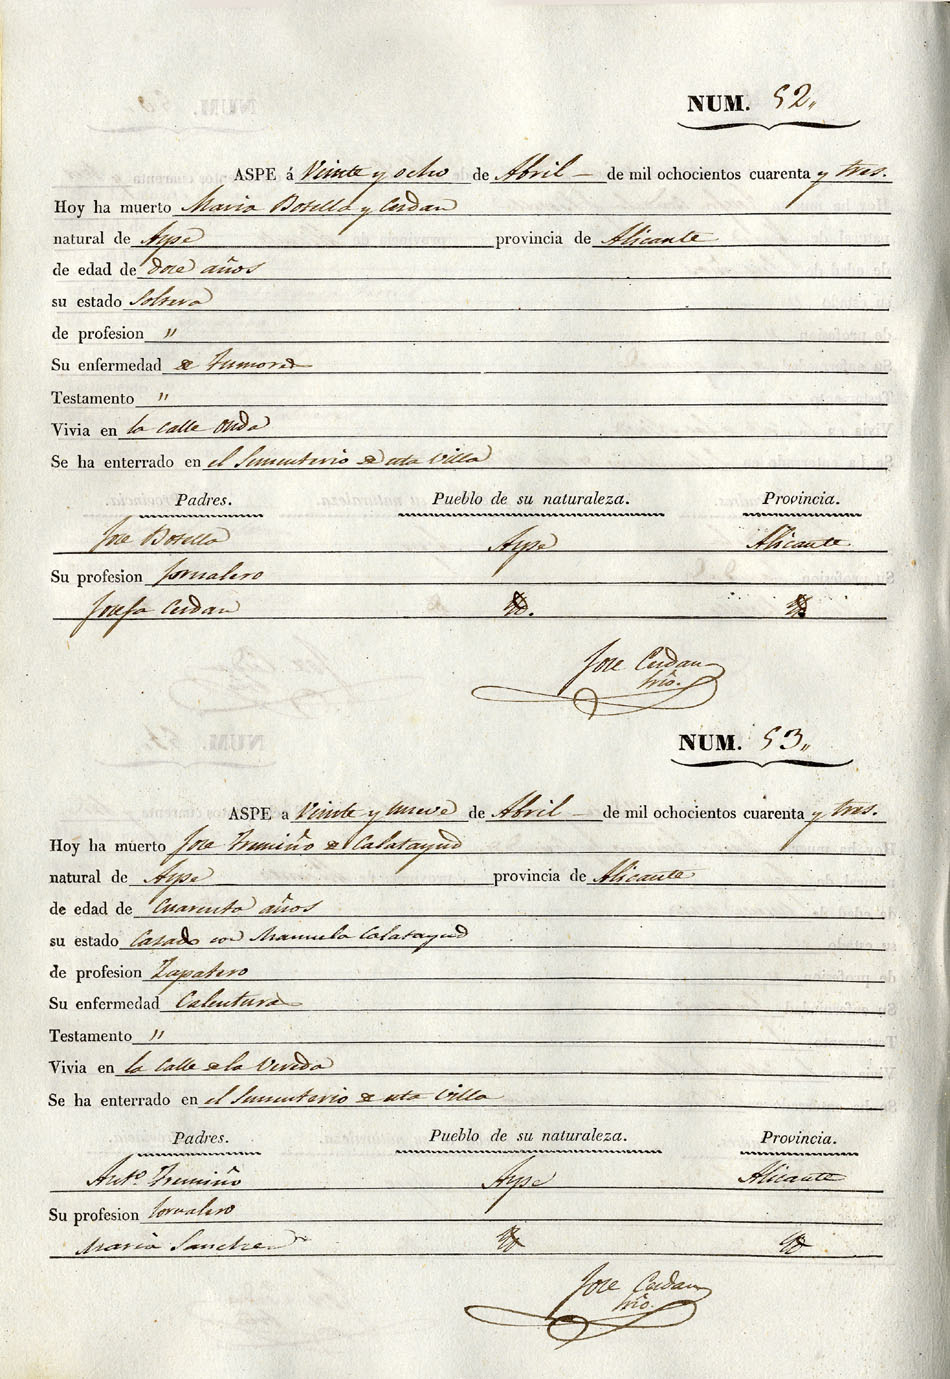 NUM. 52.
ASPE á Veinte y ocho de Abril de mil ochocientos cuarenta y tres.
Hoy ha muerto Maria Botella y Cerdan
natural de Aspe provincia de Alicante
de edad de doce años
su estado Soltera
de profesion "
Su enfermedad de Tumores
Testamento "
Vivia en la calle Onda
Se ha enterrado en el Sementerio de esta Villa
Padres. Pueblo de su naturaleza. Provincia.
Jose Botella Aspe Alicante
Su profesion Jornalero
Josefa Cerdan Yd. Yd
Jose Cerdan
Srio.
NUM. 53.
ASPE a Veinte y nueve de Abril de mil ochocientos cuarenta y tres.
Hoy ha muerto Jose Tremiño de Calatayud
natural de Aspe provincia de Alicante
de edad de Cuarenta años
su estado Casado con Manuela Calatayud
de profesion Zapatero
Su enfermedad Calentura
Testamento "
Vivia en la Calle de la Vereda
Se ha enterrado en el Sementerio de esta Villa
Padres. Pueblo de su naturaleza. Provincia.
Antº. Tremiño Aspe Alicante
Su profesion Jornalero
Maria Sanchez Yd Yd
Jose Cerdan
Srio.